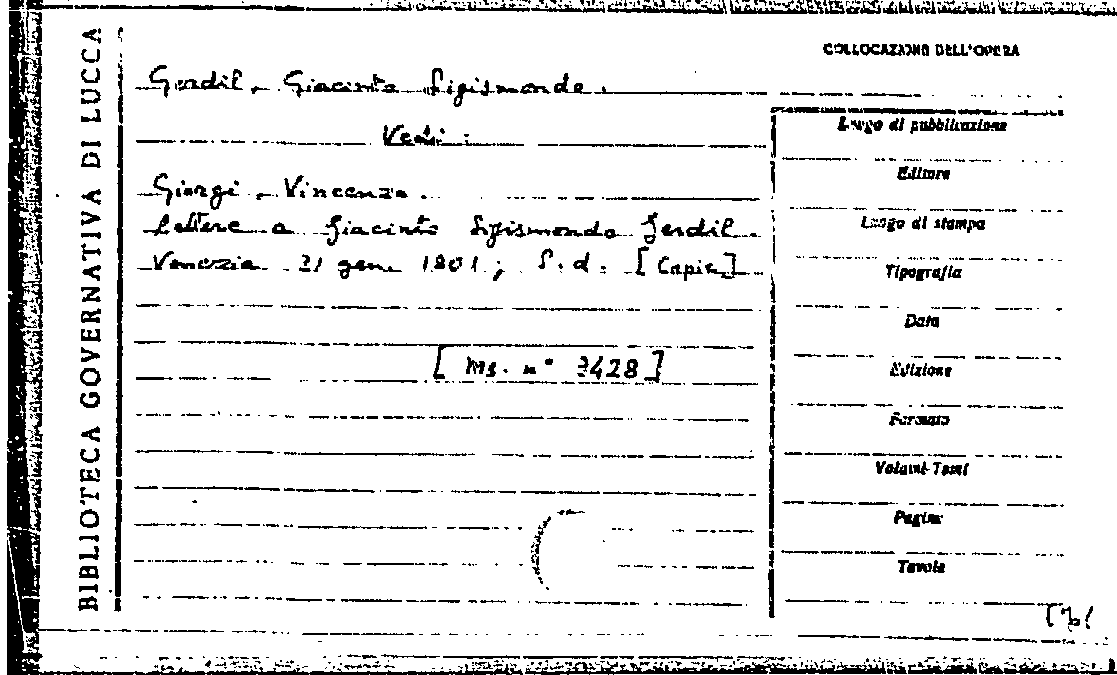 BIBLIOTECA GOVERNATIVA DI LUCCA
COLLOCAZIONE DELL'OPERA
Gerdil, Giacinto Sigismondo.
Vedi:
Giorgi, Vincenzo.
Lettere a Giacinto Sigismondo Gerdil.
Venezia 21 gen. 1801; S.d. [Copia]
[Ms. n° 3428]
Luogo di pubblicazione
Editore
Luogo di stampa
Tipografia
Data
Edizione
Formato
Volumi-Tomi
Pagine
Tavole